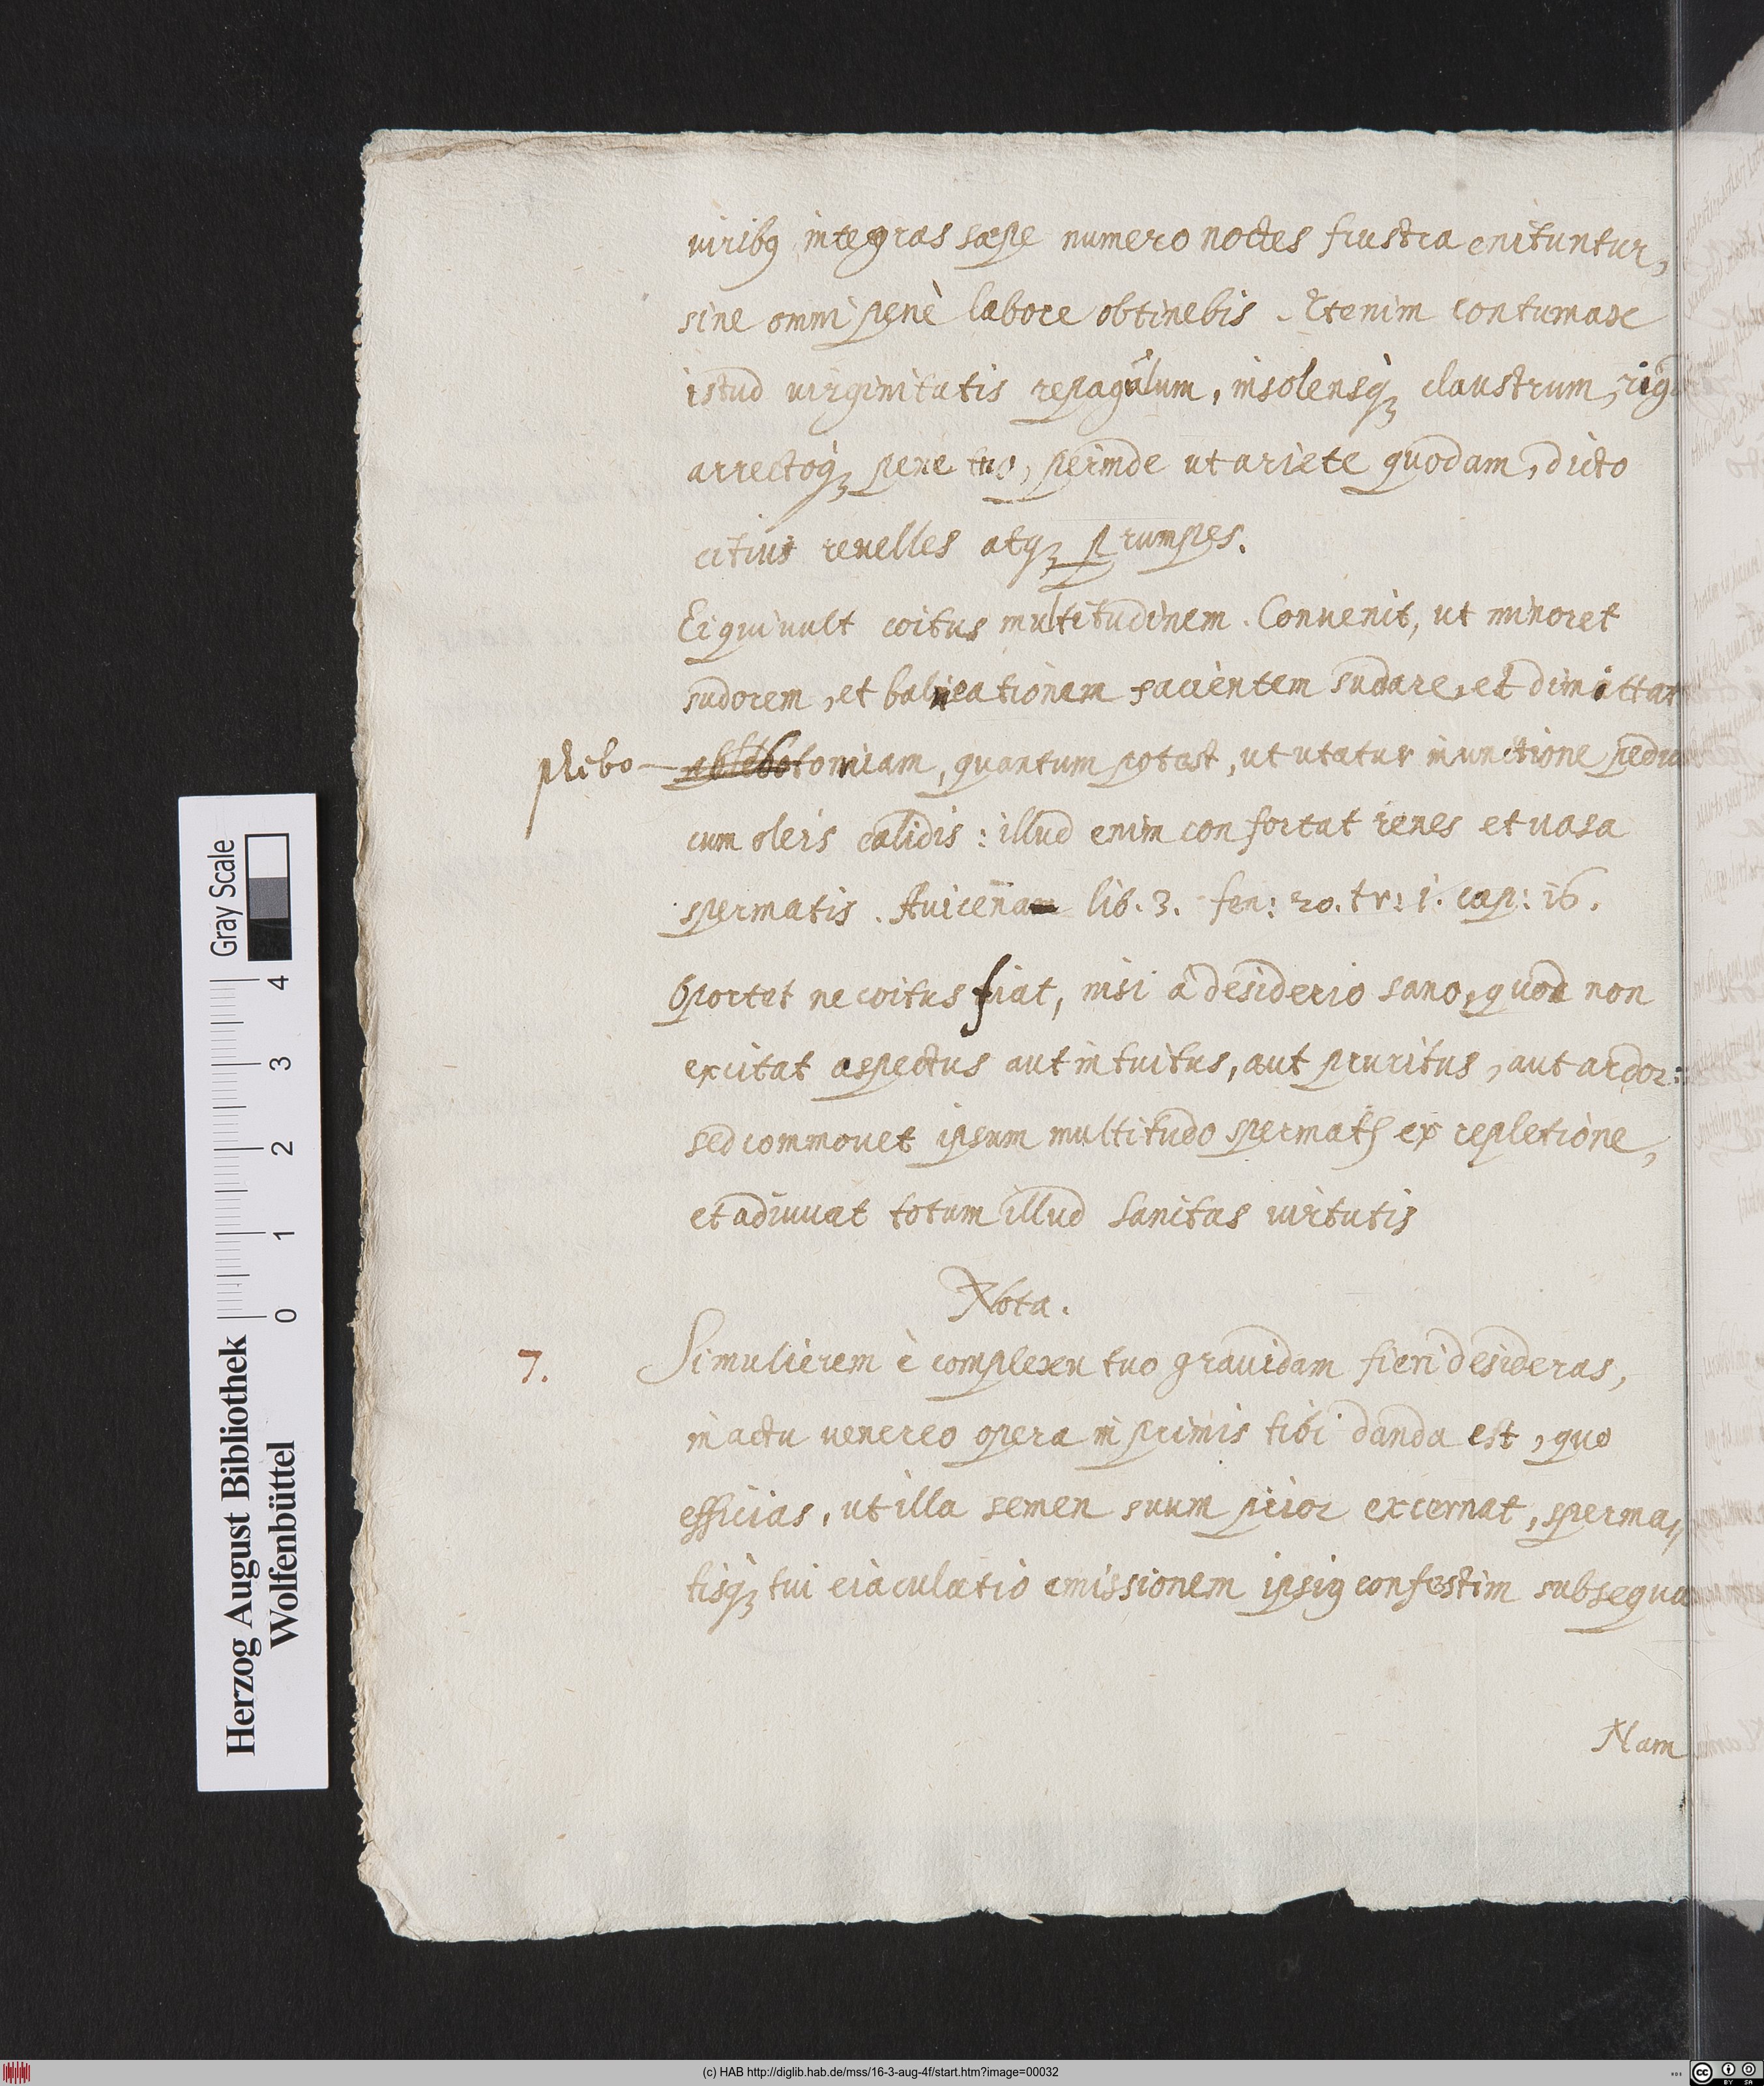 viribꝰ integras sæpe numero noctes frustra enituntur,
sine omni penè labore obtinebis. Etenim contumax
istud virginitatis repagulum, insolensq́ꝫ claustrum,
arrectoq́ꝫ pene tuo, perinde ut ariete quodam, dicto
citius revelles atqꝫ ꝑrumpes.
Ei qui vult coitus multitudinem. Convenit, ut minoret
sudorem, et balneationem facientem sudare, et dimittat
phlebo-
tomiam, quantum potest, ut utatur inunctione
cum oleis calidis: illud enim confortat renes et vasa
spermatis. Avicena lib. 3. fen: 20. tr: 1. cap: 16.
Oportet ne coitus fiat, nisi à desiderio sano, quod non
excitat aspectus aut intuitus, aut pruritus, aut ardor:
sed commovet ipsum multitudo spermatꝭ ex repletione,
et adiuvat totum illud sanitas virtutis
Nota.
7. Si mulierem è complexu tuo gravidam fieri desideras,
in actu venereo opera in primis tibi danda est, quo
efficias, ut illa semen suum prior excernat, sperma,,
tisq́ꝫ tui eiaculatio emissionem ipsiꝰ confestim subsequa
Nam
Gray Scale
0 1 2 3 4
Herzog August Bibliothek
Wolfenbüttel
(c) HAB http://diglib.hab.de/mss/16-3-aug-4f/start.htm?image=00032
cc BY SA